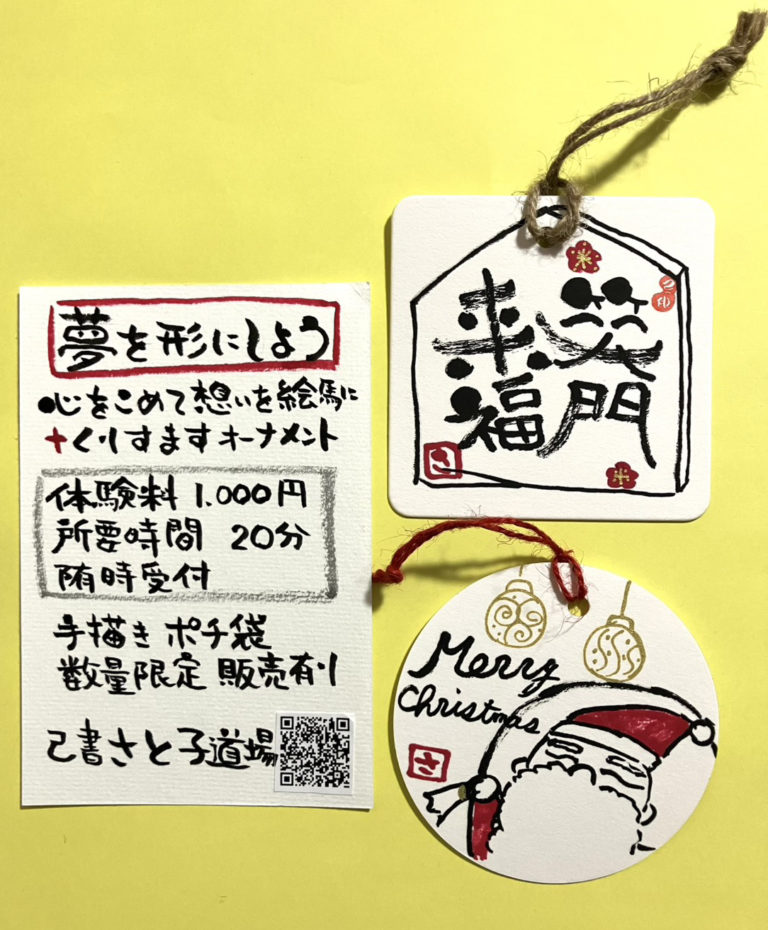 夢を形にしよう
●心をこめて想いを絵馬に
+くりすますオーナメント
体験料 1.000円
所要時間 20分
随時受付
手描き ポチ袋
数量限定 販売有り
己書さと子道場
笑門
来福
さ
Merry
Christmas
さ